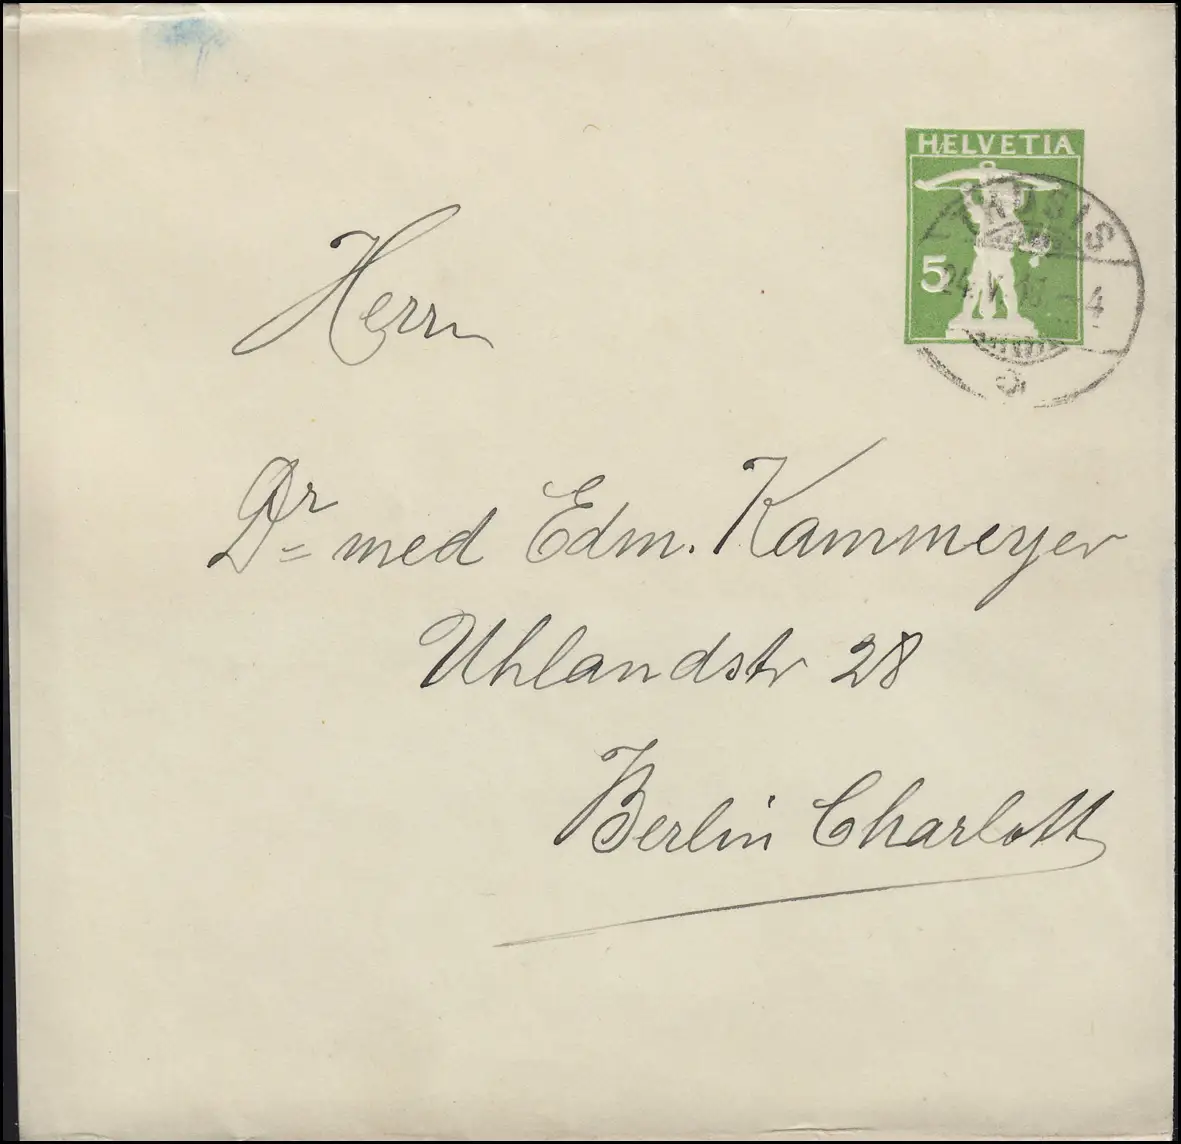 HELVETIA
5
24. V.
4
Herrn
Dr med Edm. Kammeyer
Uhlandstr 28
Berlin Charlott